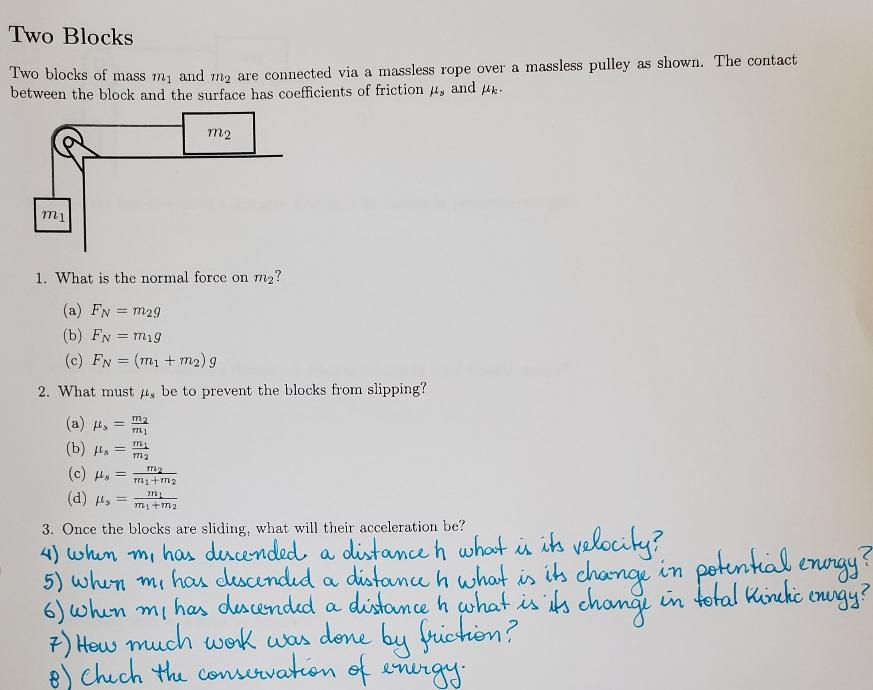 Two Blocks
Two blocks of mass m₁ and m₂ are connected via a massless rope over a massless pulley as shown. The contact
between the block and the surface has coefficients of friction μₛ and μₖ.
m₂
m₁
1. What is the normal force on m₂?
(a) F_N = m₂g
(b) F_N = m₁g
(c) F_N = (m₁ + m₂) g
2. What must μₛ be to prevent the blocks from slipping?
(a) μₛ = m₂/m₁
(b) μₛ = m₁/m₂
(c) μₛ = m₂/(m₁+m₂)
(d) μₛ = m₁/(m₁+m₂)
3. Once the blocks are sliding, what will their acceleration be?
4) when m₁ has descended a distance h what is its velocity?
5) when m₁ has descended a distance h what is its change in potential energy?
6) when m₁ has descended a distance h what is its change in total kinetic energy?
7) How much work was done by friction?
8) Chech the conservation of energy.